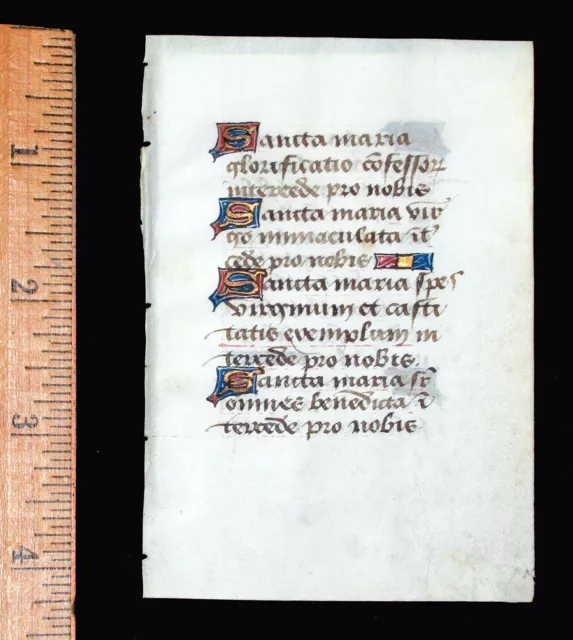 Sancta maria
glorificatio cōfessoꝝ
intercede pro nobis
Sancta maria vir
go immaculata īt
cede pro nobis
Sancta maria spes
virginum et casti
tatis exemplum in
tercede pro nobis.
Sancta maria sr̄
omnes benedicta ī
tercede pro nobis
1
2
3
4